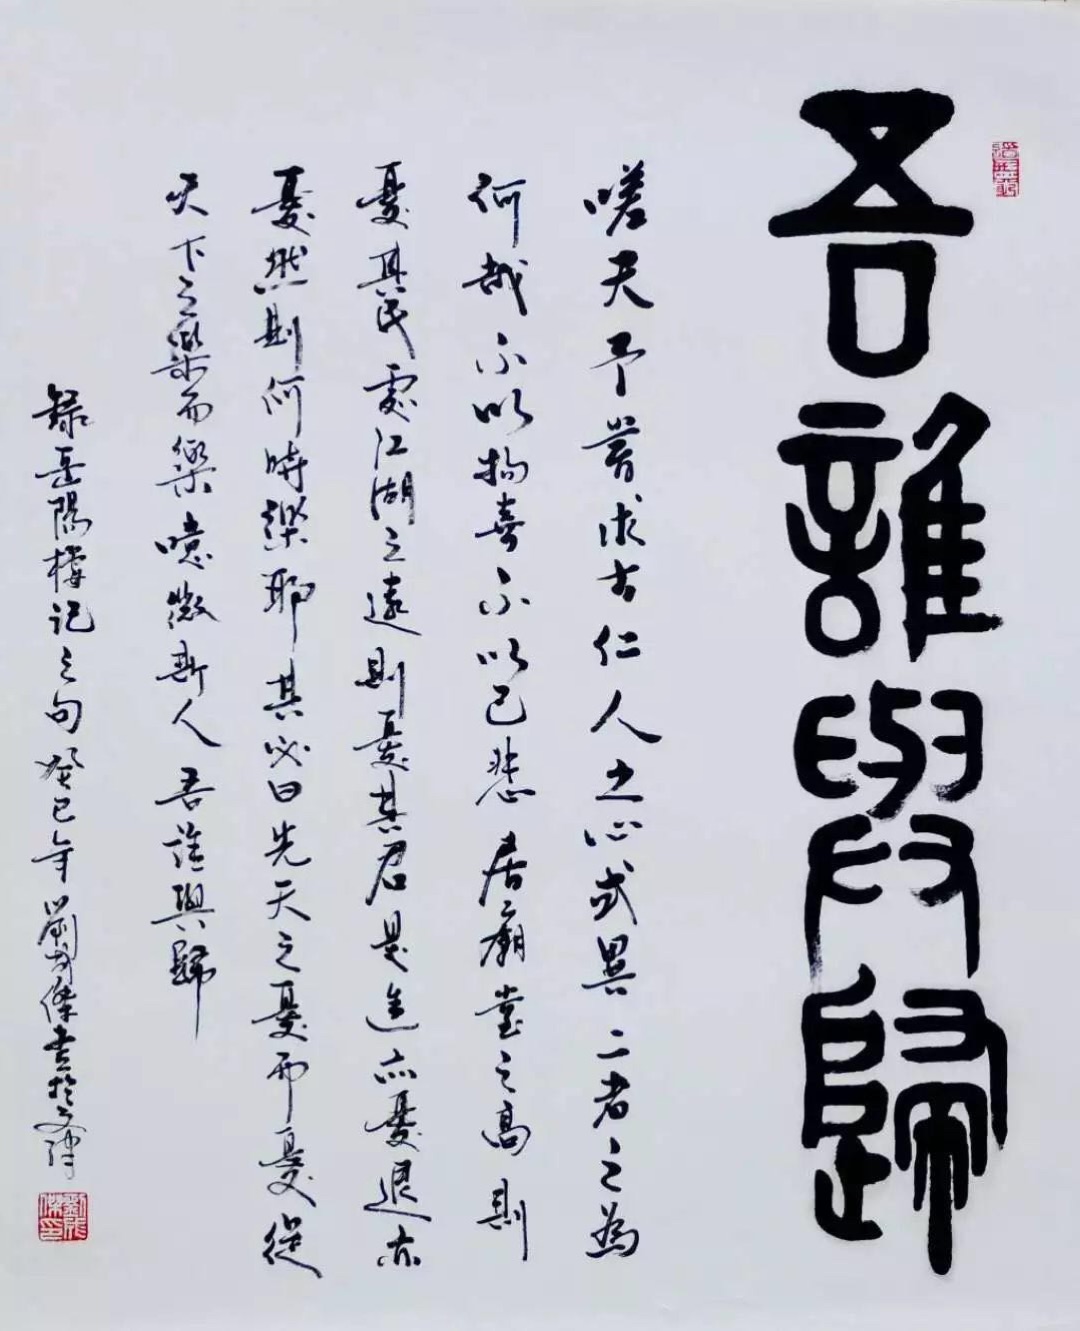 吾誰與歸
嗟夫予嘗求古仁人之心或異二者之為
何哉不以物喜不以己悲居廟堂之高則
憂其民處江湖之遠則憂其君是進亦憂退亦
憂然則何時樂耶其必曰先天之憂而憂後
天下之樂而樂噫微斯人吾誰與歸
錄岳陽樓記之句癸巳年劉傑書於